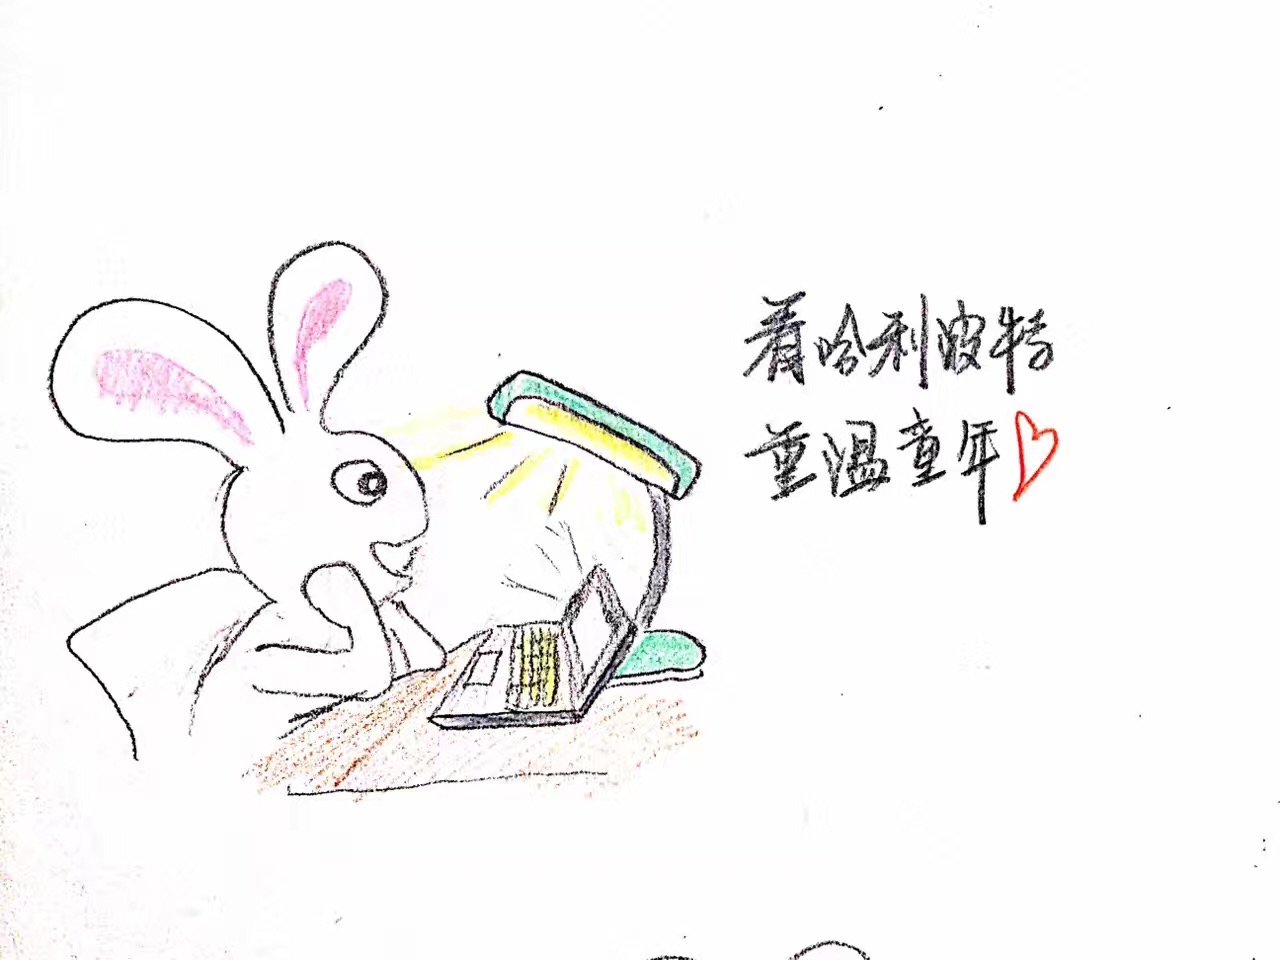 看哈利波特
重温童年